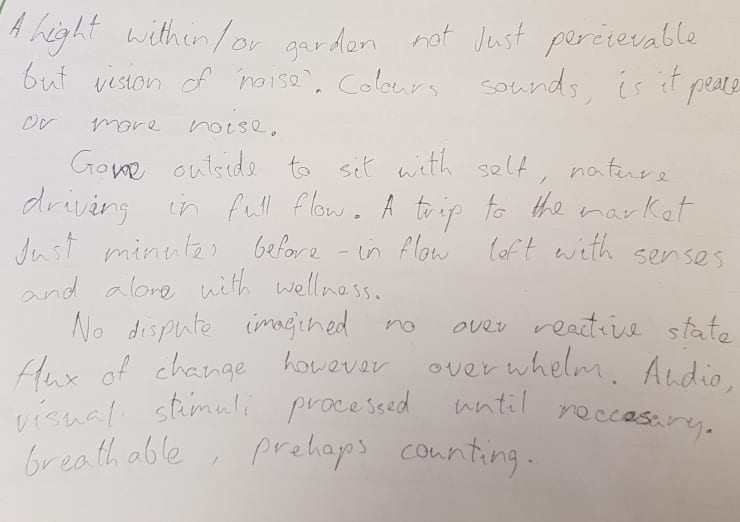 A hight within/or garden not Just percievable
but vision of 'noise'. Colours sounds, is it peace
or more noise.
Gone outside to sit with self, nature
driving in full flow. A trip to the market
Just minutes before - in flow left with senses
and alone with wellness.
No dispute imagined no over reactive state
flux of change however overwhelm. Audio,
visual stimuli processed until neccesary.
breathable, prehaps counting.